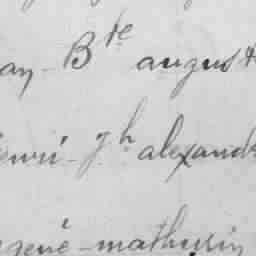 an - Bte august
enri - Jh alexand
gene - mathurin